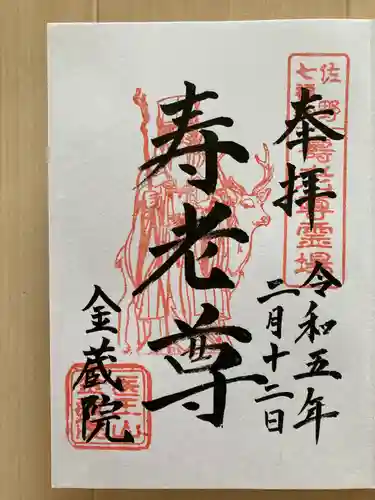 奉拝
佐野
七福
寿老尊霊場
令和五年
二月十二日
寿老尊
金蔵院